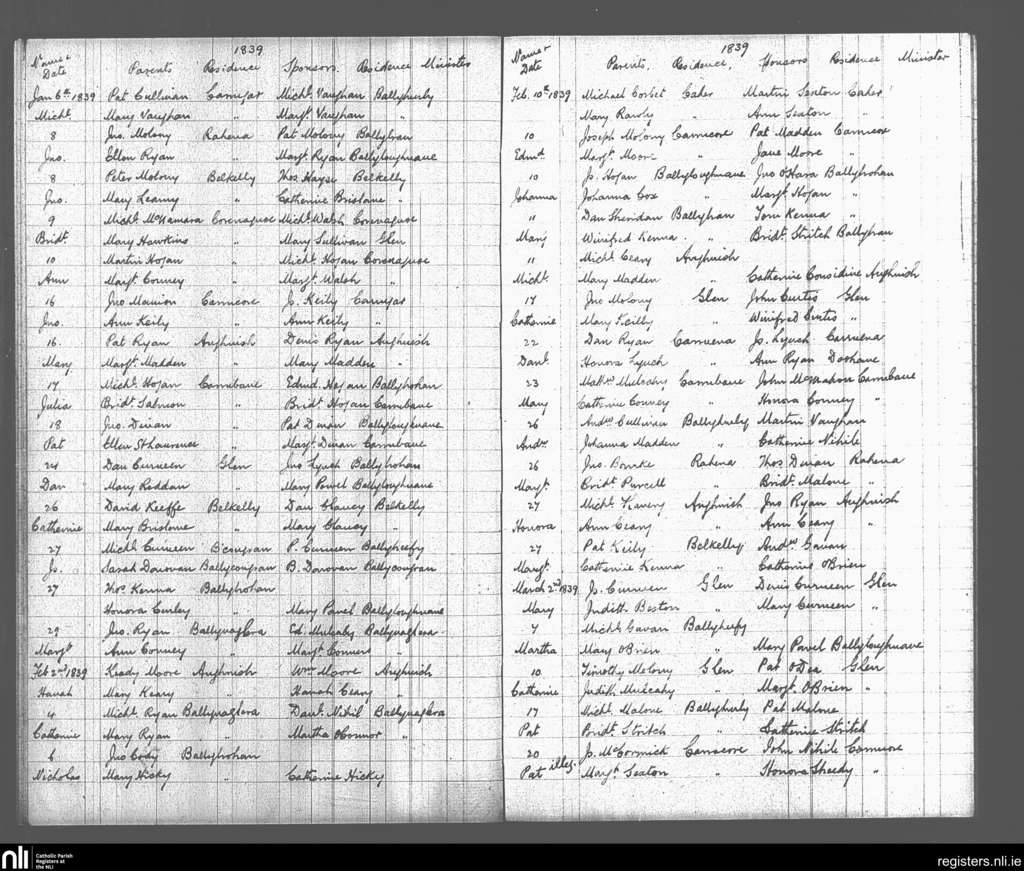 1839
Name & Date Parents Residence Sponsors. Residence Minister
Jan 6th 1839 Pat Cullinan Carnigar Michl. Vaughan Ballyhurly
Michl. Mary Vaughan " Margt. Vaughan "
8 Jno. Molony Rahena Pat Molony Ballybran
Jno. Ellen Ryan " Margt. Ryan Ballyloughnane
8 Peter Molony Belkelly Thos. Hayse Belkelly
Jno. Mary Leamy " Catherine Brislane "
9 Michl. McNamara Corenaguse Michl. Walsh Corenaguse
Bridt. Mary Hawkins " Mary Sullivan Glen
10 Martin Hogan " Michl. Hogan Corenaguse
Ann Margt. Conney " Margt. Walsh "
16 Jno Mannion Carnicore J. Keily Carnigar
Jno. Ann Keily " Ann Keily "
16. Pat Ryan Aughnish Denis Ryan Aughnish
Mary Margt. Madden " Mary Madden "
17 Michl. Hogan Carnibane Edmd. Hogan Ballyhohan
Julia Bridt. Salmon " Bridt. Hogan Carnibane
18 Jno. Dinan Pat Dinan Ballyloughnane
Pat Ellen St Lawrence " Margt. Dinan Carnibane
24 Dan Curneen Glen Jno Lynch Ballyhohan
Dan Mary Reddan " Mary Powel Ballyloughnane
26 David Keeffe Belkelly Dan Glancy Belkelly
Catherine Mary Brislane " Mary Glancy "
27 Michl. Curneen B'cougran P. Curneen Ballyheefy
Js. Sarah Donovan Ballycougran B. Donovan Ballycougran
27 Thos. Kenna Ballyhohan
Honora Curley " Mary Powel Ballyloughnane
29 Jno. Ryan Ballynaglera Ed. Mulcahy Ballynaglera
Margt. Ann Conney " Margt. Conners "
Feb 2nd 1839 Keady Moore Aughnish Wm. Moore Aughnish
Hanah Mary Keary " Hanah Ceary "
4 Michl. Ryan Ballynaglera Danl. Nihil Ballynaglera
Catherine Mary Ryan " Martha O'Connor "
6 Jno Cody Ballyhohan
Nicholas Mary Hicky " Catherine Hicky
1839
Name & Date Parents, Residence, Sponsors Residence Minister
Feb. 10th 1839 Michael Corbet Caher Martin Sexton Caher
Mary Rawly " Ann Sexton "
10 Joseph Molony Carnicore Pat Madden Carnicore
Edmd Margt. Moore " Jane Moore "
10 Js. Hogan Ballyloughnane Jno O'Hara Ballyhohan
Johanna Johanna Cox " Margt. Hogan "
11 Dan Sheridan Ballybran Tom Kenna "
Mary Winifred Kenna " Bridt. Stritch Ballybran
11 Michl. Ceary Aughnish
Michl. Mary Madden " Catherine Considine Aughnish
17 Jno Molony Glen John Curtis Glen
Catherine Mary Keilly " Winifred Curtis "
22 Dan Ryan Carruena Js. Lynch Carruena
Danl. Honora Lynch " Ann Ryan Doohane
23 Matt. Mulachy Carnibane John McMahon Carnibane
Mary Catherine Conney " Honora Conney "
26 Andw Cullinan Ballyhurley Martin Vaughan
Andw Johanna Madden " Catherine Nihile
26 Jno. Bourke Rahena Thos. Dinan Rahena
Margt. Bridt. Purcell " Bridt. Malone "
27 Michl. Kaveny Aughnish Jno Ryan Aughnish
Honora Ann Ceary " Ann Ceary "
27 Pat Keily Belkelly Andw Gavan
Margt. Catherine Kenna " Catherine O'Brien
March 2nd 1839 Js. Curneen Glen Denis Curneen Glen
Mary Judith Beston " Mary Curneen "
7 Michl. Gavan Ballyheefy
Martha Mary O'Brien " Mary Powel Ballyloughnane
10 Timothy Molony Glen Pat O'Dea Glen
Catherine Judith Mulcahy " Margt. O'Brien "
17 Michl. Malone Ballyhurly Pat Malone
Pat Bridt. Stritch " Catherine Stritch
20 Js. McCormick Carnicore John Nihile Carnicore
Pat illeg. Margt. Sexton " Honora Sheedy "
nli Catholic Parish
Registers at
the NLI
registers.nli.ie